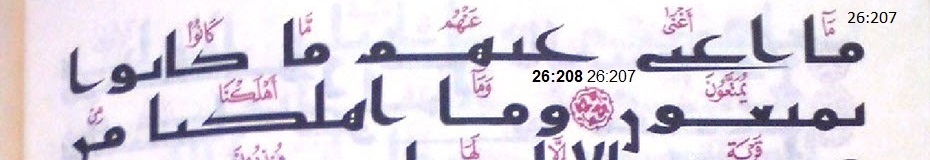 26:207
مَّا أَغْنَىٰ عَنْهُم مَّا كَانُوا
ما اغنى عنهم ما كانوا
26:208 26:207
يُمَتَّعُونَ وَمَا أَهْلَكْنَا مِن
يمتعون وما اهلكنا من
قَرْيَةٍ إِلَّا لَهَا مُنذِرُونَ